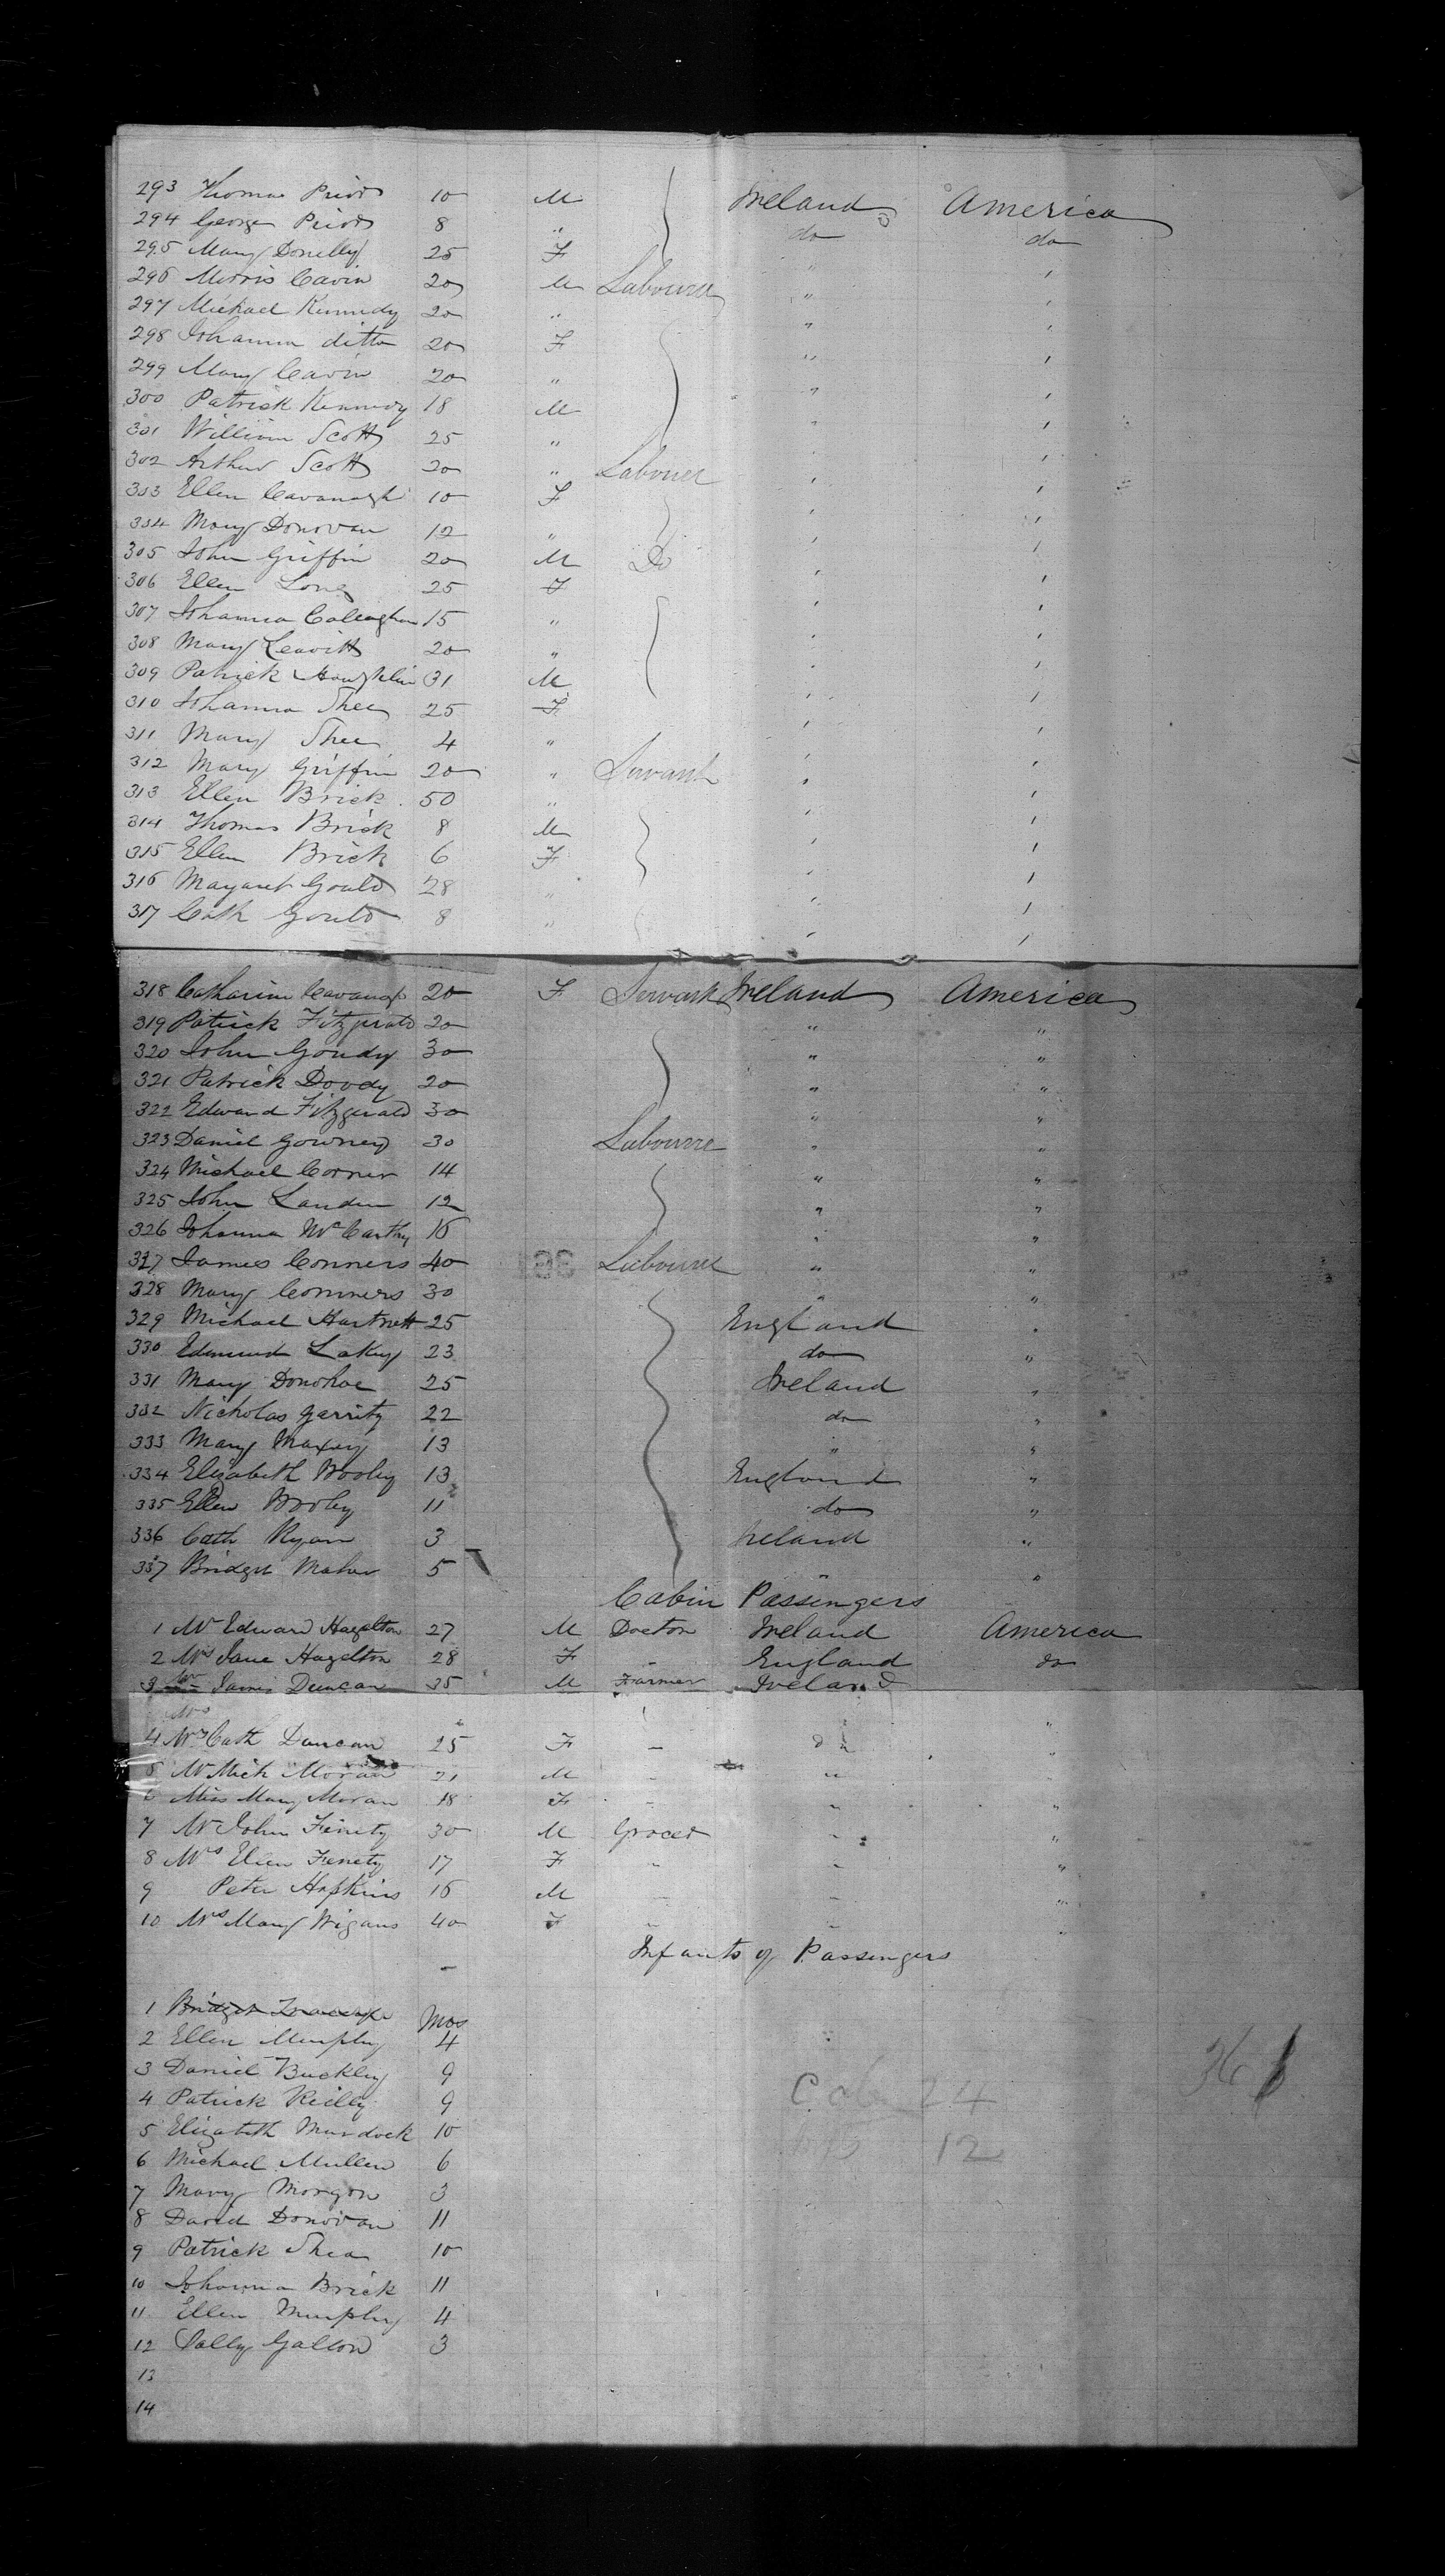 293 Thomas Prior 10 M Ireland America
294 George Prior 8 " do do
295 Mary Donelly 25 F " "
296 Morris Cavin 20 M Labourer " "
297 Michael Kennedy 20 " " "
298 Johanna ditto 20 F " "
299 Mary Cavin 20 " " "
300 Patrick Kennedy 18 M " "
301 William Scott 25 " " "
302 Arthur Scott 20 " Labourer " "
303 Ellen Cavanagh 10 F " "
304 Mary Donovan 12 " " "
305 John Griffin 20 M Do " "
306 Ellen Long 25 F " "
307 Johanna Callaghan 15 " " "
308 Mary Leavitt 20 " " "
309 Patrick 31 M " "
310 Johanna Shee 25 F " "
311 Mary Shee 4 " " "
312 Mary Griffin 20 " Servant " "
313 Ellen Brick 50 " " "
314 Thomas Brick 8 M " "
315 Ellen Brick 6 F " "
316 Margaret Gould 28 " " "
317 Cath Gould 8 " " "
318 Catharine Cavanagh 20 F Servant Ireland America
319 Patrick Fitzgerald 20 " "
320 John Goudy 30 " "
321 Patrick Doody 20 " "
322 Edward Fitzgerald 30 " "
323 Daniel Gowney 30 Labourer " "
324 Michael Corner 14 " "
325 John Landen 12 " "
326 Johanna McCarthy 16 " "
327 James Conners 40 Labourer " "
328 Mary Conners 30 " "
329 Michael Hartnett 25 England "
330 Edmund Lakey 23 do "
331 Mary Donohoe 25 Ireland "
332 Nicholas Garrity 22 do "
333 Mary Maxey 13 " "
334 Elizabeth Wooley 13 England "
335 Ellen Wooley 11 do "
336 Cath Ryan 3 Ireland "
337 Bridget Maher 5 " "
Cabin Passengers
1 Mr Edward Hazelton 27 M Doctor Ireland America
2 Mrs Jane Hazelton 28 F - England do
3 Mr James Duncan 35 M Farmer Ireland
4 Mrs Cath Duncan 25 F - do "
5 Mr Mich Moran 21 M - " "
6 Miss Mary Moran 18 F - " "
7 Mr John Fenety 30 M Grocer " "
8 Mrs Ellen Fenety 17 F - " "
9 Peter Hopkins 16 M - " "
10 Mrs Mary Wigans 40 F - " "
Infants of Passengers
1 Bridget Mos
2 Ellen Murphy 4
3 Daniel Buckley 9
4 Patrick Reilly 9
5 Elizabeth Murdock 10
6 Michael Mullen 6
7 Mary Morgan 3
8 David Donovan 11
9 Patrick Shea 10
10 Johanna Brick 11
11 Ellen Murphy 4
12 Sally Gallon 3
13
14
Cab 24
12